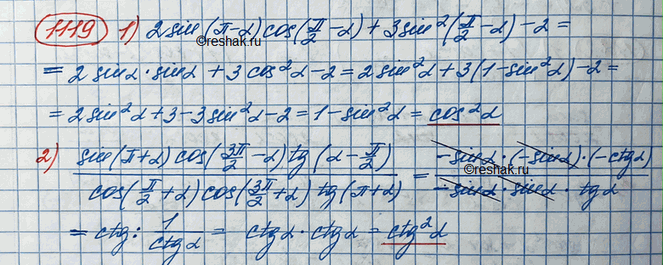 1119 1) 2 sin(π-α) cos(π/2-α) + 3 sin²(π/2-α) - 2 =
©reshak.ru
= 2 sinα·sinα + 3 cos²α - 2 = 2 sin²α + 3(1-sin²α) - 2 =
= 2 sin²α + 3 - 3 sin²α - 2 = 1 - sin²α = cos²α
2) sin(π+α) cos(3π/2-α) tg(α-π/2) / cos(π/2+α) cos(3π/2+α) tg(π+α) = -sinα·(-sinα)·(-ctgα) / -sinα·sinα·tgα
©reshak.ru
= ctg : 1/ctgα = ctgα·ctgα = ctg²α